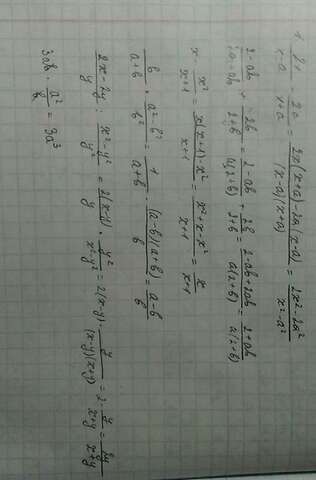 2x/(x-a) - 2a/(x+a) = (2x(x+a)-2a(x-a))/((x-a)(x+a)) = (2x²-2a²)/(x²-a²)
(2-ab)/(2a-ab) + 2b/(2+b) = (2-ab)/(a(2+b)) + 2b/(2+b) = (2-ab+2ab)/(a(2+b)) = (2+ab)/(a(2+b))
x - x²/(x+1) = (x(x+1)-x²)/(x+1) = (x²+x-x²)/(x+1) = x/(x+1)
b/(a+b) · (a²-b²)/b² = 1/(a+b) · ((a-b)(a+b))/b = (a-b)/b
(2x-2y)/y : (x²-y²)/y² = 2(x-y)/y · y²/(x²-y²) = 2(x-y) · y/((x-y)(x+y)) = 2 · y/(x+y) = 2y/(x+y)
3ab · a²/b = 3a³